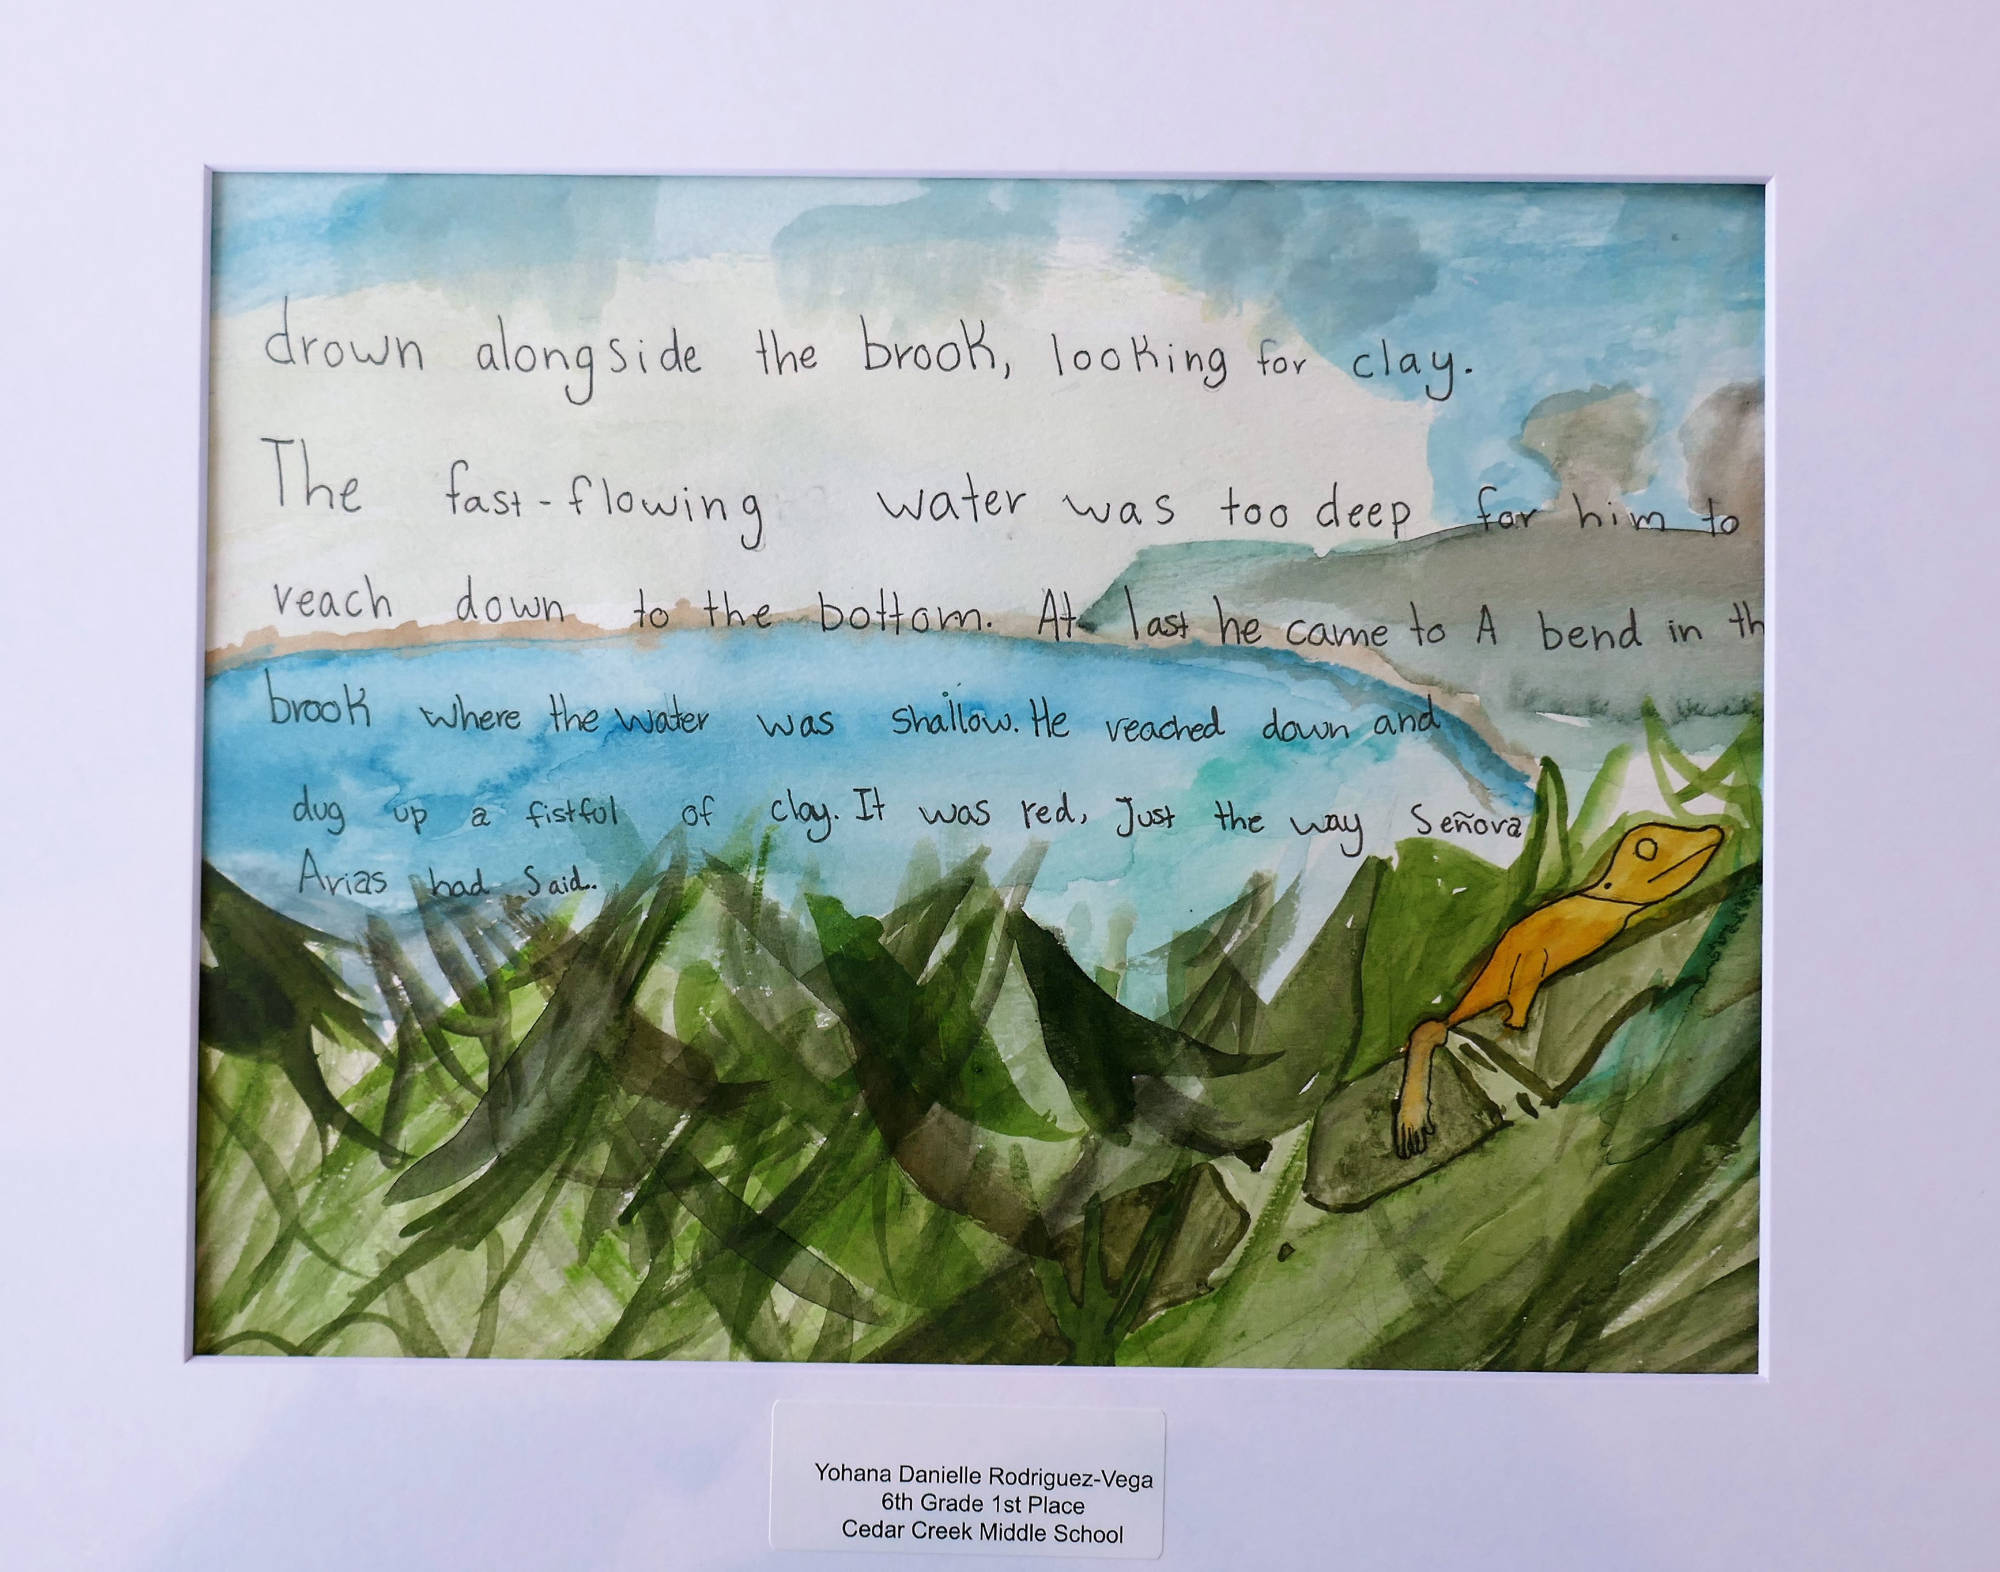 drown alongside the brook, looking for clay.
The fast-flowing water was too deep for him to
reach down to the bottom. At last he came to A bend in th
brook where the water was shallow. He reached down and
dug up a fistful of clay. It was red, Just the way Señora
Arias had Said.
Yohana Danielle Rodriguez-Vega
6th Grade 1st Place
Cedar Creek Middle School